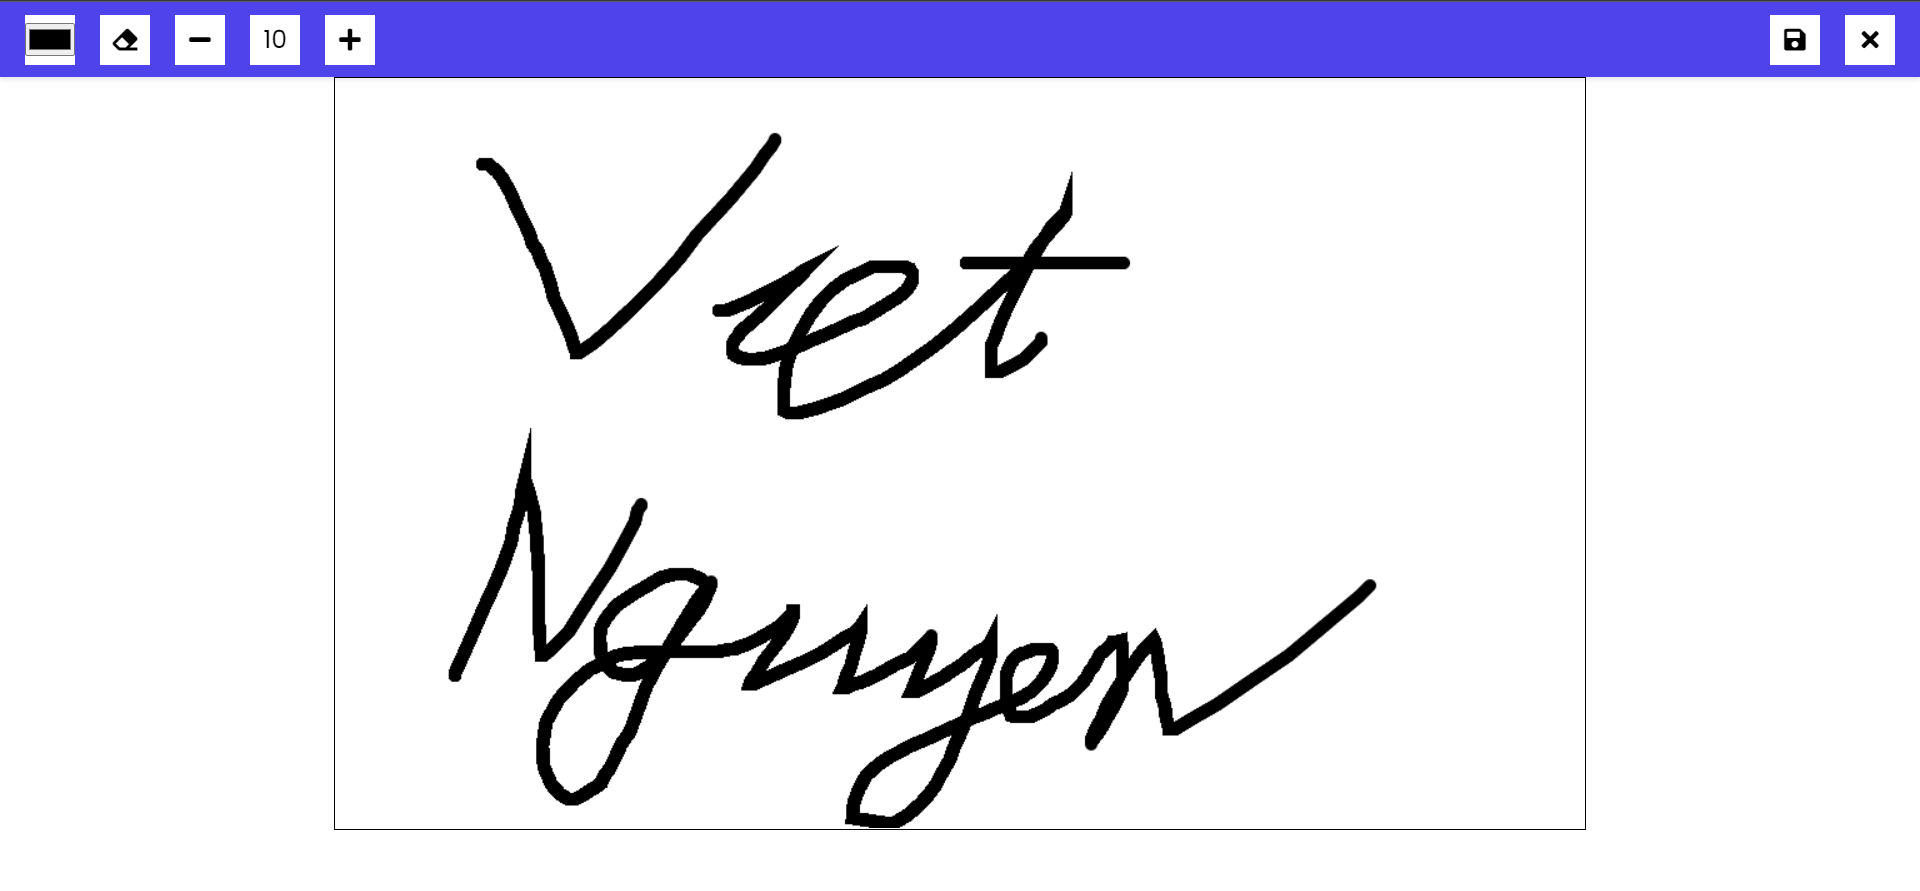 10
Viet
Nguyen